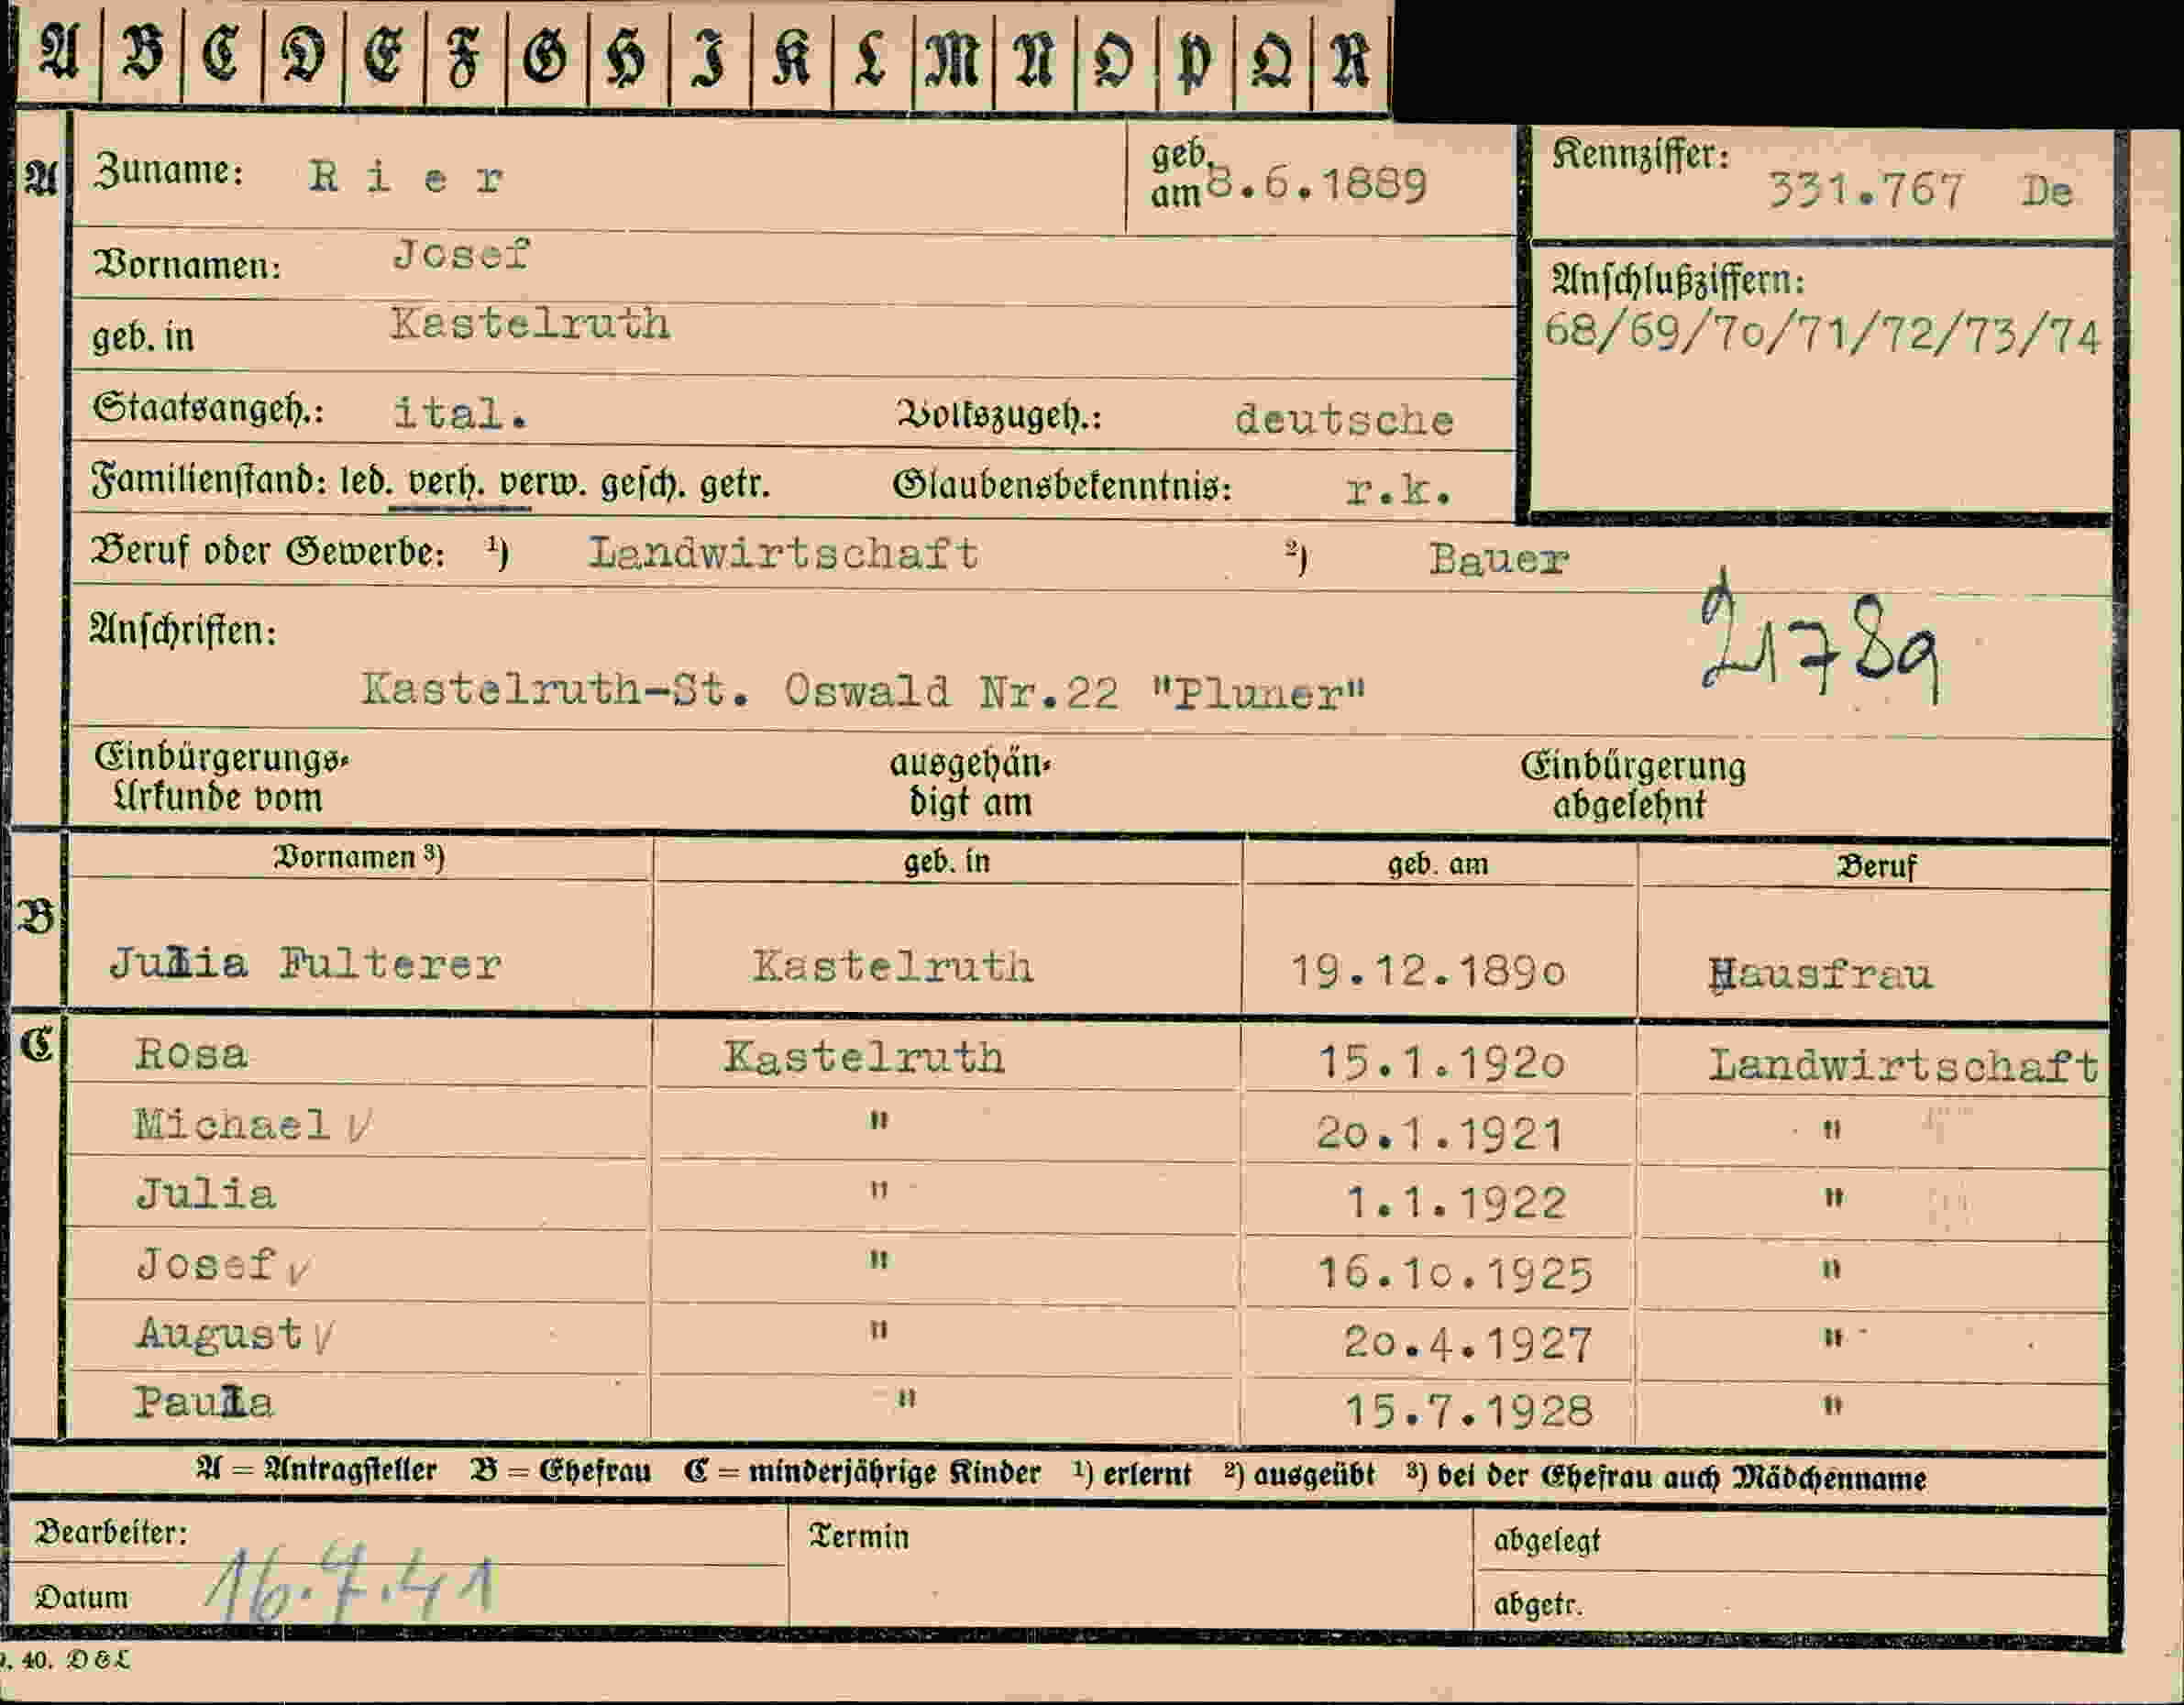 A B C D E F G H I K L M N O P Q R
A
Zuname: Rier
geb. am 8.6.1889
Kennziffer: 331.767 De
Vornamen: Josef
Anschlußziffern:
68/69/70/71/72/73/74
geb. in Kastelruth
Staatsangeh.: ital. Volkszugeh.: deutsche
Familienstand: led. verh. verw. gesch. getr. Glaubensbekenntnis: r.k.
Beruf oder Gewerbe: ¹) Landwirtschaft ²) Bauer
Anschriften:
21789
Kastelruth-St. Oswald Nr.22 "Pluner"
Einbürgerungs- ausgehän- Einbürgerung
Urkunde vom digt am abgelehnt
Vornamen ³) geb. in geb. am Beruf
B
Julia Fulterer Kastelruth 19.12.1890 Hausfrau
C
Rosa Kastelruth 15.1.1920 Landwirtschaft
Michael √ " 20.1.1921 "
Julia " 1.1.1922 "
Josef √ " 16.10.1925 "
August √ " 20.4.1927 "
Paula " 15.7.1928 "
A = Antragsteller B = Ehefrau C = minderjährige Kinder ¹) erlernt ²) ausgeübt ³) bei der Ehefrau auch Mädchenname
Bearbeiter: Termin abgelegt
Datum 16.7.41 abgetr.
40. D&L